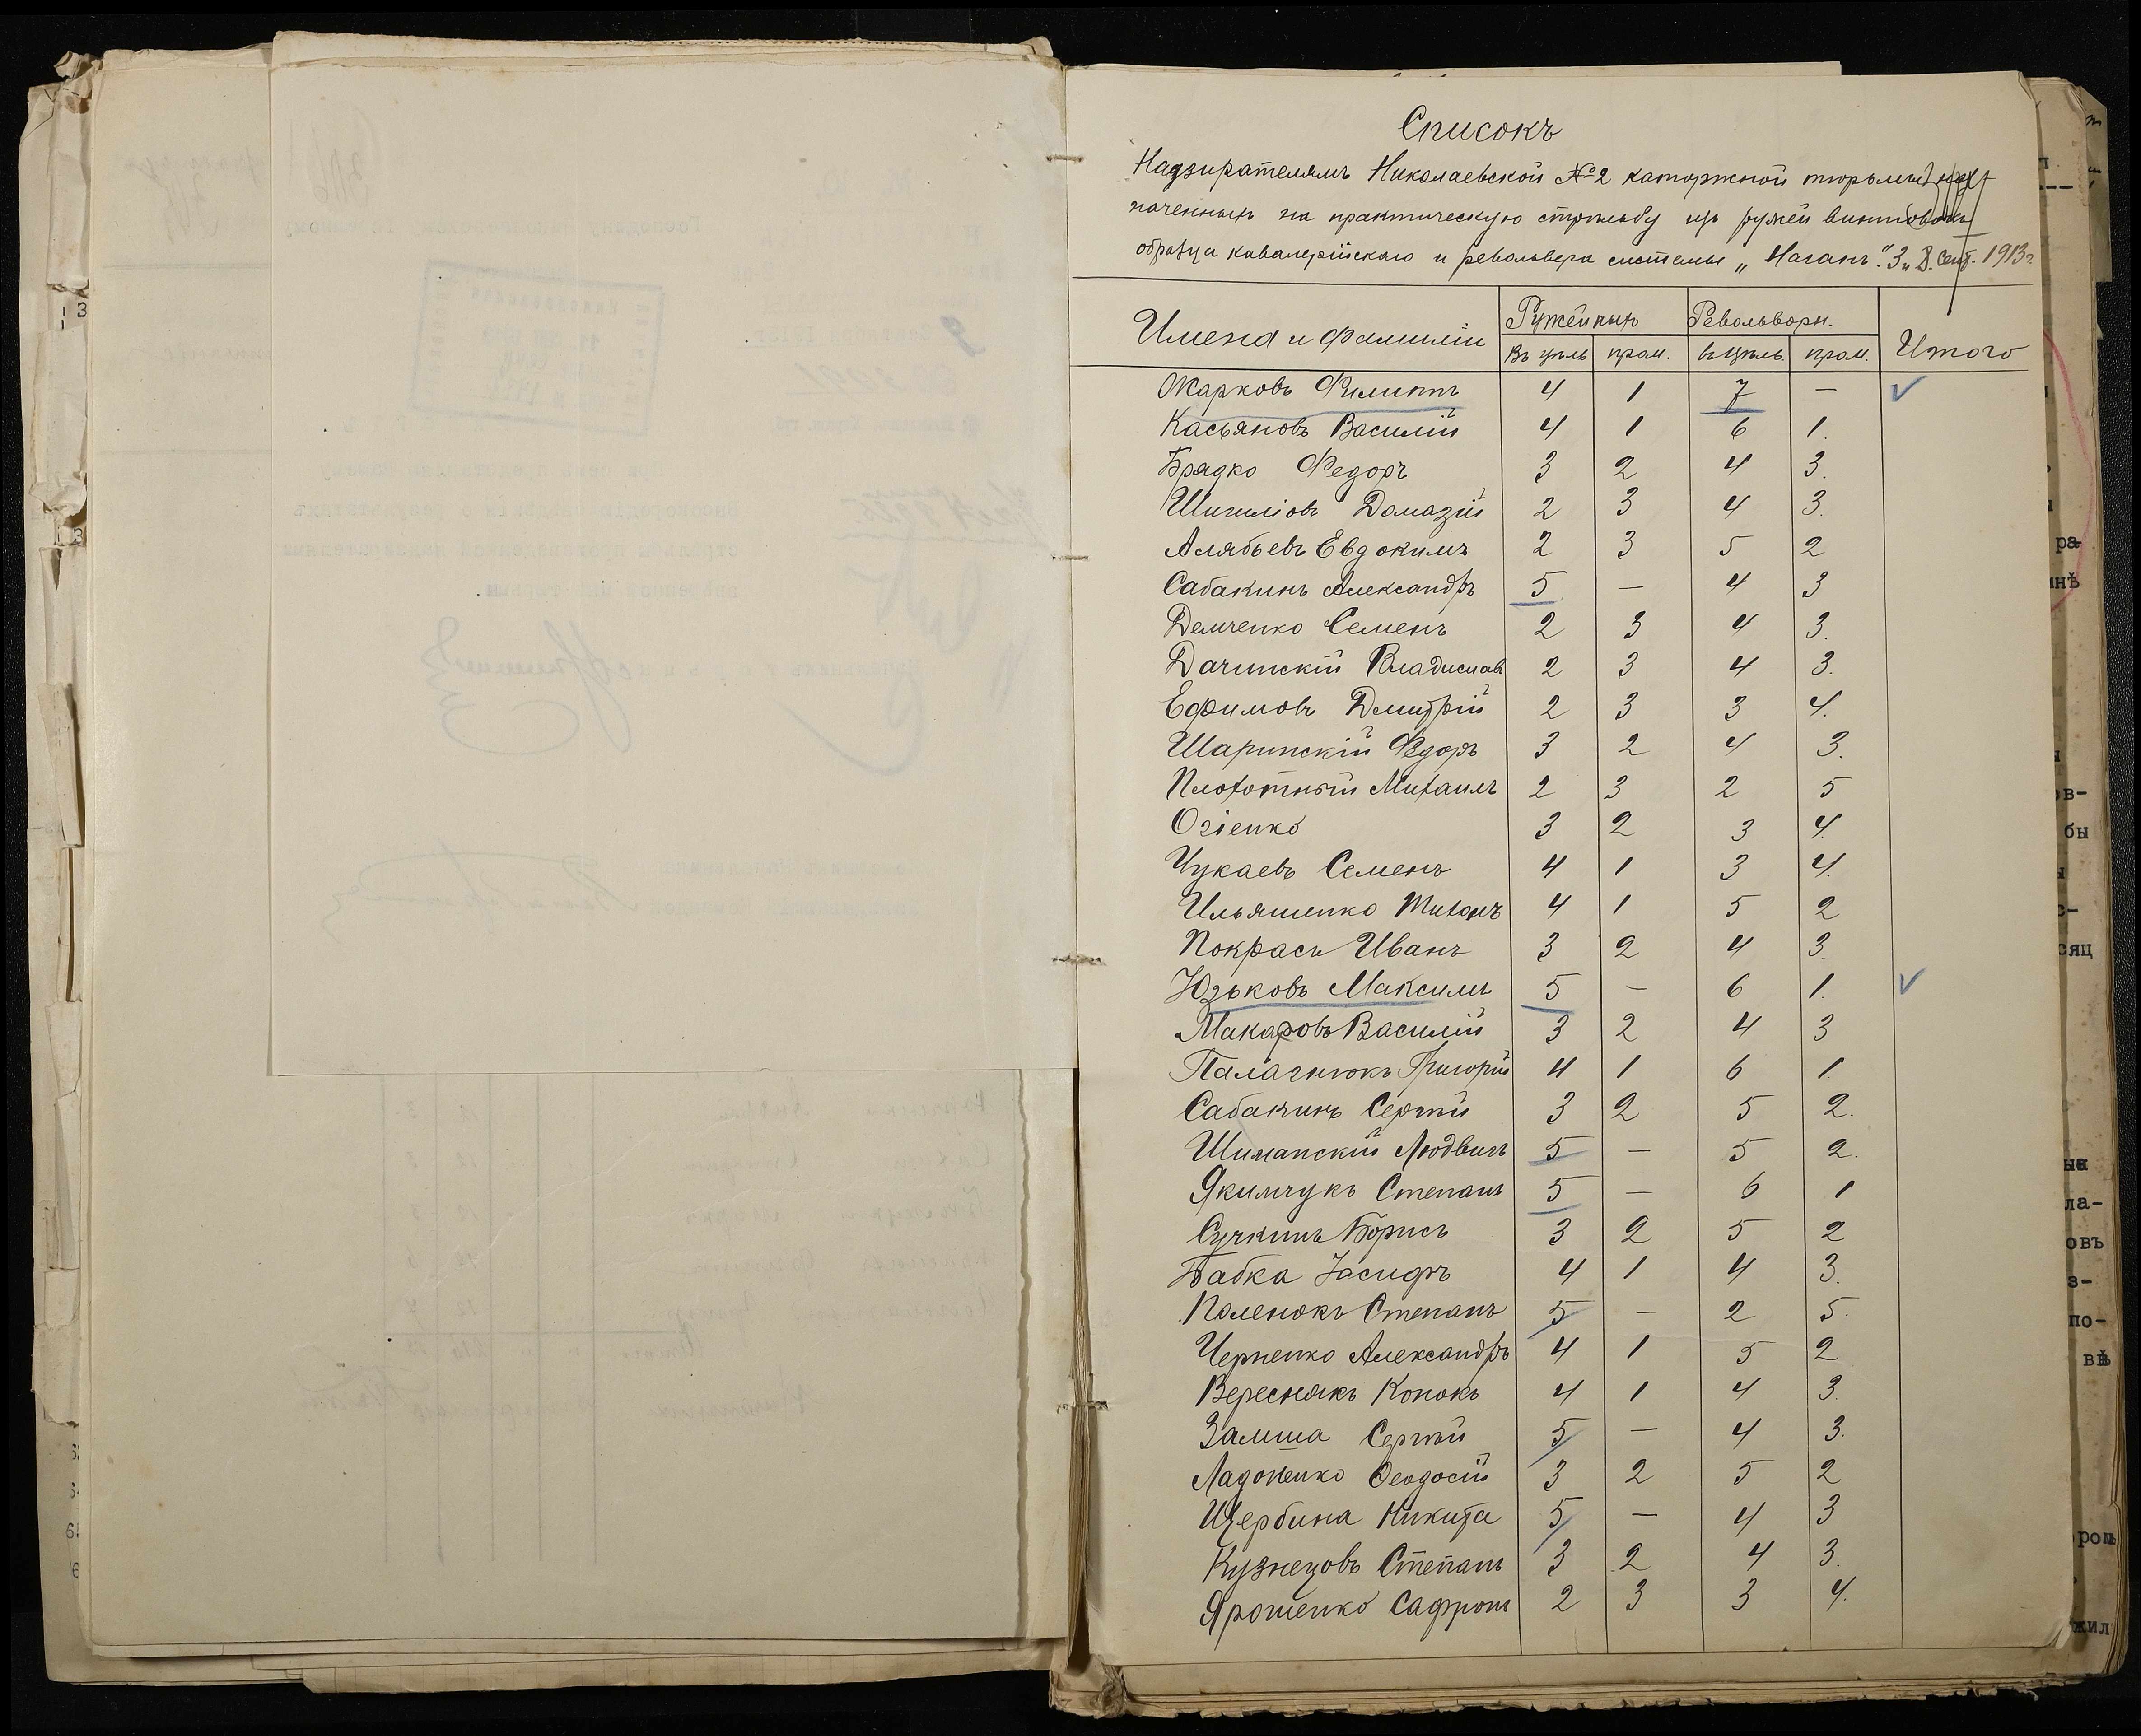 Списокъ
Надзирателямъ Николаевской №2 каторжной тюрьмы
наченныхъ на практическую стрѣльбу изъ ружей винтовокъ
образца кавалерійскаго и револьвера системы „Наганъ“ 3 и 8 Сент. 1913г.
Имена и Фамиліи Ружейныхъ Револьверн. Итого
Въ цѣль пром. въ цѣль пром.
Жарковъ Филиппъ 4 1 7 — ✓
Касьяновъ Василій 4 1 6 1.
Брядко Федоръ 3 2 4 3.
Шигиліовъ Домазій 2 3 4 3.
Алябьевъ Евдокимъ 2 3 5 2
Сабакинъ Александръ 5 — 4 3
Демченко Семенъ 2 3 4 3.
Дачинскій Владиславъ 2 3 4 3.
Ефимовъ Дмитрій 2 3 3 4.
Шаринскій Федоръ 3 2 4 3.
Плохотный Михаилъ 2 3 2 5
Огіенко 3 2 3 4.
Чукаевъ Семенъ 4 1 3 4.
Ильяшенко Михаилъ 4 1 5 2
Покрасъ Иванъ 3 2 4 3.
Юзьковъ Максимъ 5 — 6 1. ✓
Макаровъ Василій 3 2 4 3
Палагнюкъ Григорій 4 1 6 1.
Сабакинъ Сергѣй 3 2 5 2.
Шиманскій Людвигъ 5 — 5 2.
Якимчукъ Степанъ 5 — 6 1
Сучкинъ Борисъ 3 2 5 2
Бабка Іосифъ 4 1 4 3.
Поленокъ Степанъ 5 — 2 5.
Черненко Александръ 4 1 5 2
Вереснякъ Кононъ 4 1 4 3.
Замша Сергѣй 5 — 4 3.
Ладоненко Феодосій 3 2 5 2
Щербина Никита 5 — 4 3
Кузнецовъ Степанъ 3 2 4 3.
Ярошенко Сафронъ 2 3 3 4.